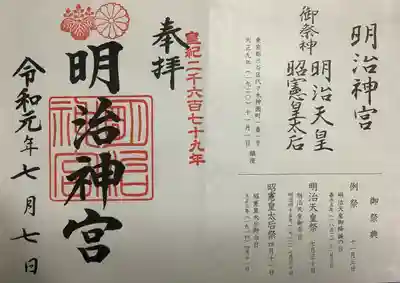 明治神宮
御祭神
明治天皇
昭憲皇太后
東京都渋谷区代々木神園町一番一号
大正九年(一九二〇)十一月一日 鎮座
御祭典
例祭 十一月三日
明治天皇御降誕の日
明治天皇祭 七月三十日
明治天皇崩御の日
昭憲皇太后祭 四月十一日
昭憲皇太后崩御の日
皇紀二千六百七十九年
奉拝
明治神宮
令和元年七月七日